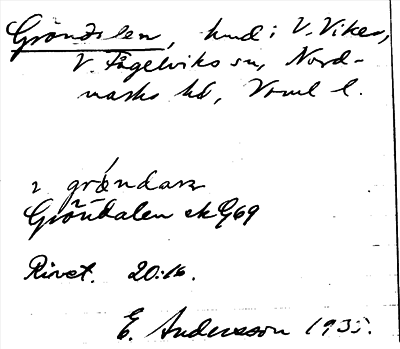 Gröndalen, hmd i V. Viker,
V. Fågelviks sn, Nord-
marks hd, Vrml l.
2 grǿndaɷr
Gröndalen ek G69
Rivet. 20.16.
E. Andersson 1935.